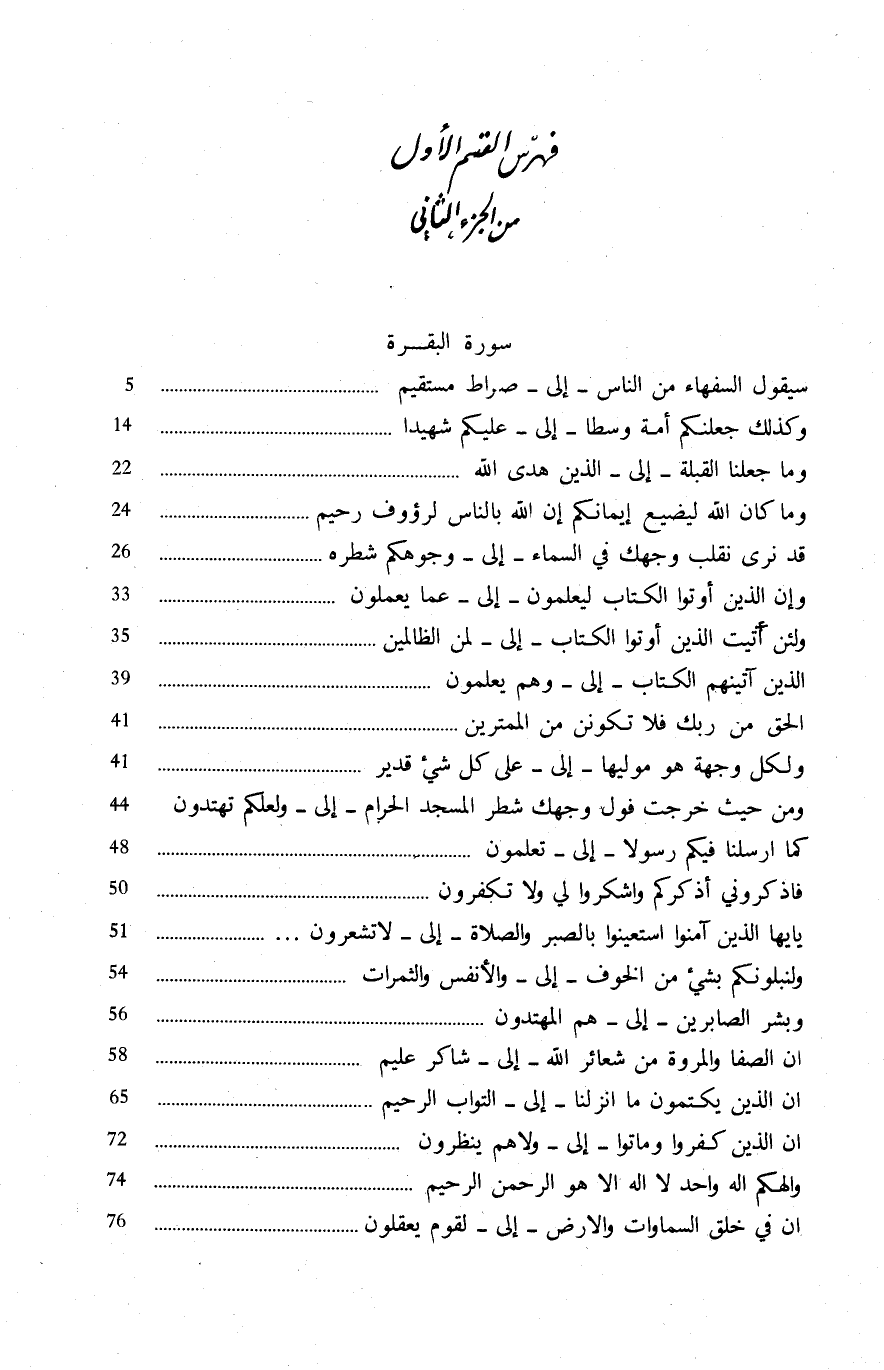 فهرس القسم الأول
من الجزء الثاني
سورة البقـــرة
سيقول السفهاء من الناس ـ إلى ـ صراط مستقيم ........ 5
وكذلك جعلنكم أمة وسطا ـ إلى ـ عليكم شهيدا ........ 14
وما جعلنا القبلة ـ إلى ـ الذين هدى الله ........ 22
وما كان الله ليضيع إيمانكم إن الله بالناس لرؤوف رحيم ........ 24
قد نرى نقلب وجهك في السماء ـ إلى ـ وجوهكم شطره ........ 26
وإن الذين أوتوا الكتاب ليعلمون ـ إلى ـ عما يعملون ........ 33
ولئن أتيت الذين أوتوا الكتاب ـ إلى ـ لمن الظالمين ........ 35
الذين آتينهم الكتاب ـ إلى ـ وهم يعلمون ........ 39
الحق من ربك فلا تكونن من الممترين ........ 41
ولكل وجهة هو موليها ـ إلى ـ على كل شيئ قدير ........ 41
ومن حيث خرجت فول وجهك شطر المسجد الحرام ـ إلى ـ ولعلكم تهتدون 44
كما ارسلنا فيكم رسولا ـ إلى ـ تعلمون ........ 48
فاذكروني أذكركم واشكروا لي ولا تكفرون ........ 50
يايها الذين آمنوا استعينوا بالصبر والصلاة ـ إلى ـ لاتشعرون ... ........ 51
ولنبلونكم بشيئ من الخوف ـ إلى ـ والأنفس والثمرات ........ 54
وبشر الصابرين ـ إلى ـ هم المهتدون ........ 56
ان الصفا والمروة من شعائر الله ـ إلى ـ شاكر عليم ........ 58
ان الذين يكتمون ما انزلنا ـ إلى ـ التواب الرحيم ........ 65
ان الذين كفروا وماتوا ـ إلى ـ ولاهم ينظرون ........ 72
والهكم اله واحد لا اله الا هو الرحمن الرحيم ........ 74
ان في خلق السماوات والارض ـ إلى ـ لقوم يعقلون ........ 76